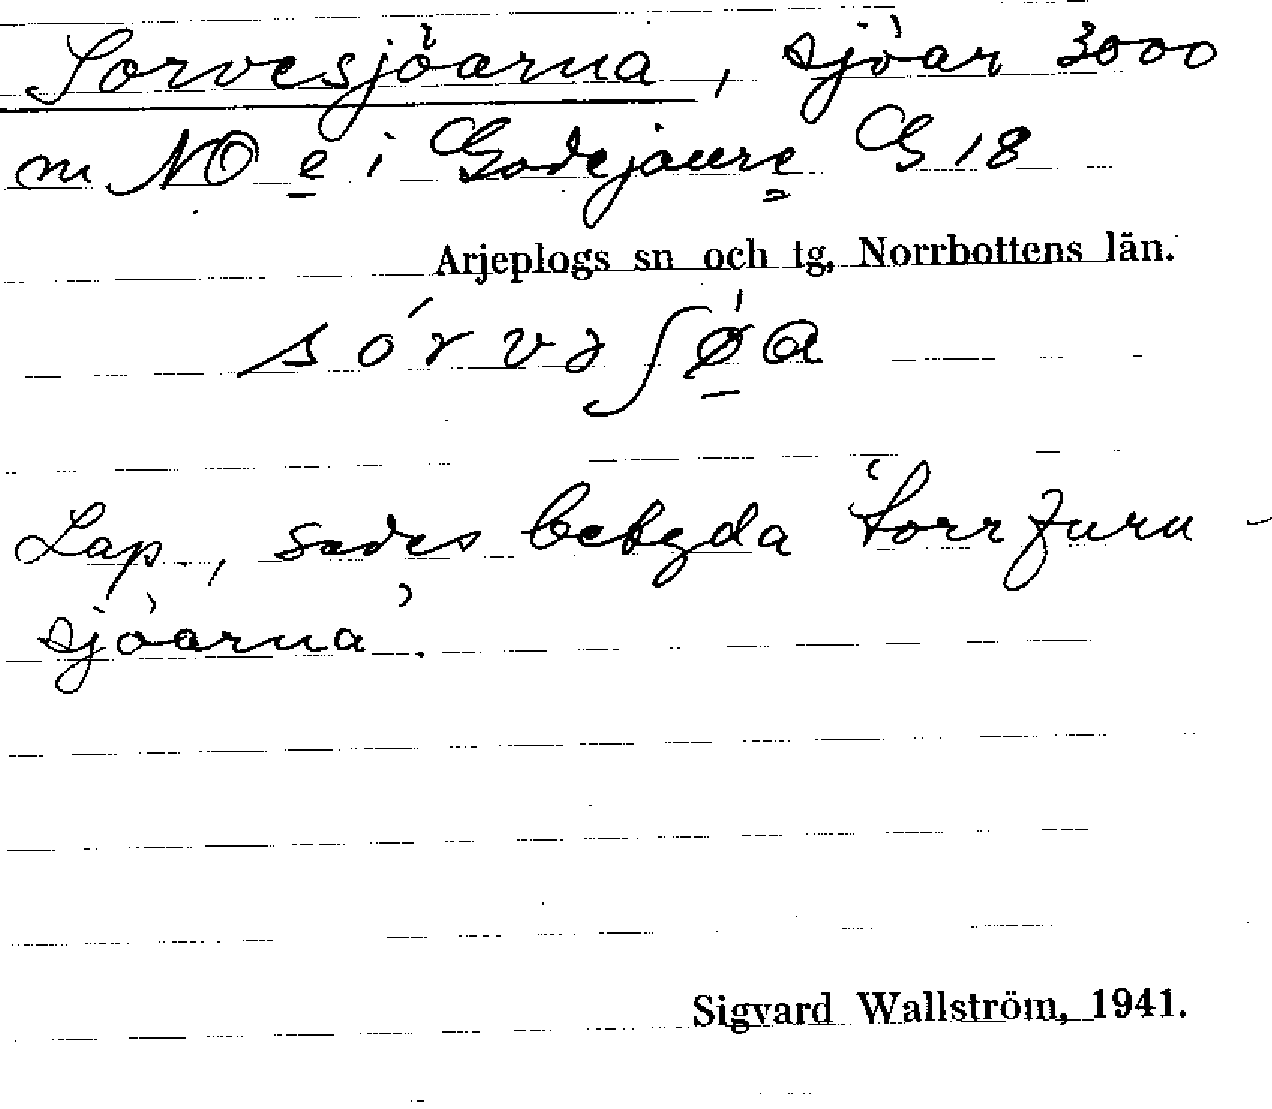 Sorvesjöarna, sjöar 3000
m NO e i Godejaure G 18
Arjeplogs sn och tg, Norrbottens län.
sórvəʃø̀a
Lap., sades betyda 'torrfuru-
sjöarna'.
Sigvard Wallström, 1941.